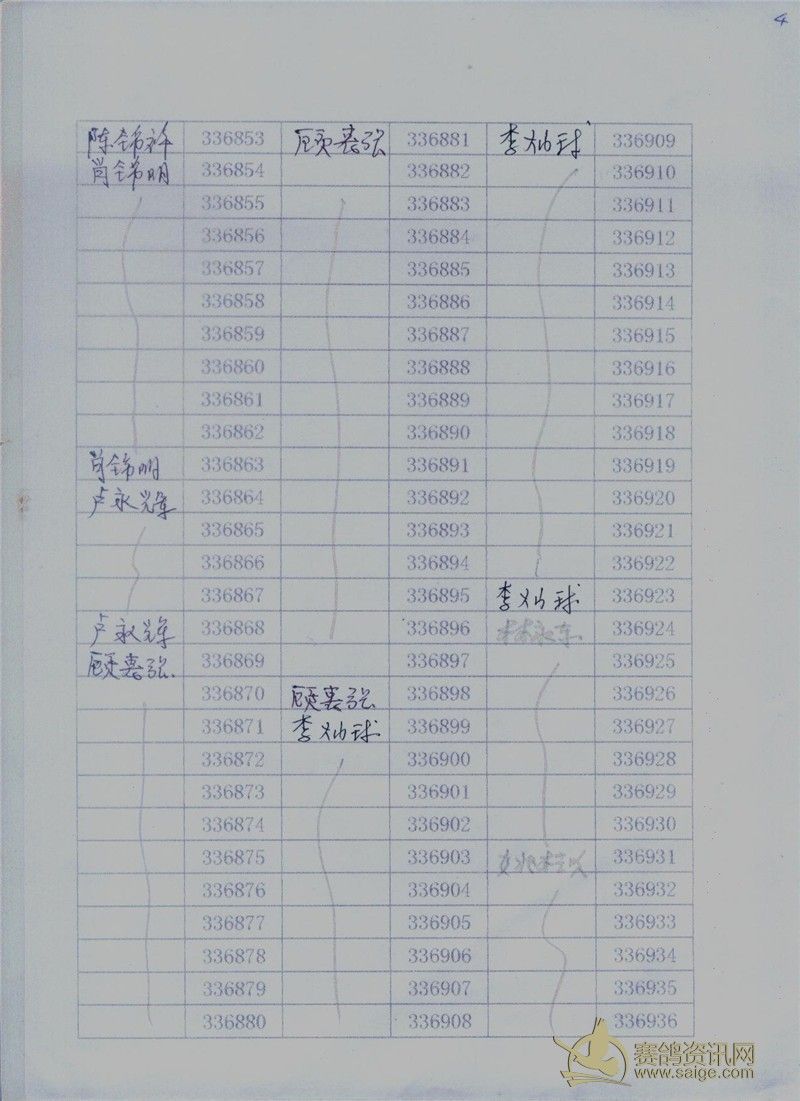 4
陈锦祥 336853 顾嘉强 336881 李灿球 336909
肖锦明 336854 336882 336910
336855 336883 336911
336856 336884 336912
336857 336885 336913
336858 336886 336914
336859 336887 336915
336860 336888 336916
336861 336889 336917
336862 336890 336918
肖锦明 336863 336891 336919
卢永辉 336864 336892 336920
336865 336893 336921
336866 336894 336922
336867 336895 李灿球 336923
卢永辉 336868 336896 336924
顾嘉强 336869 336897 336925
336870 顾嘉强 336898 336926
336871 李灿球 336899 336927
336872 336900 336928
336873 336901 336929
336874 336902 336930
336875 336903 336931
336876 336904 336932
336877 336905 336933
336878 336906 336934
336879 336907 336935
336880 336908 336936
赛鸽资讯网
www.saige.com